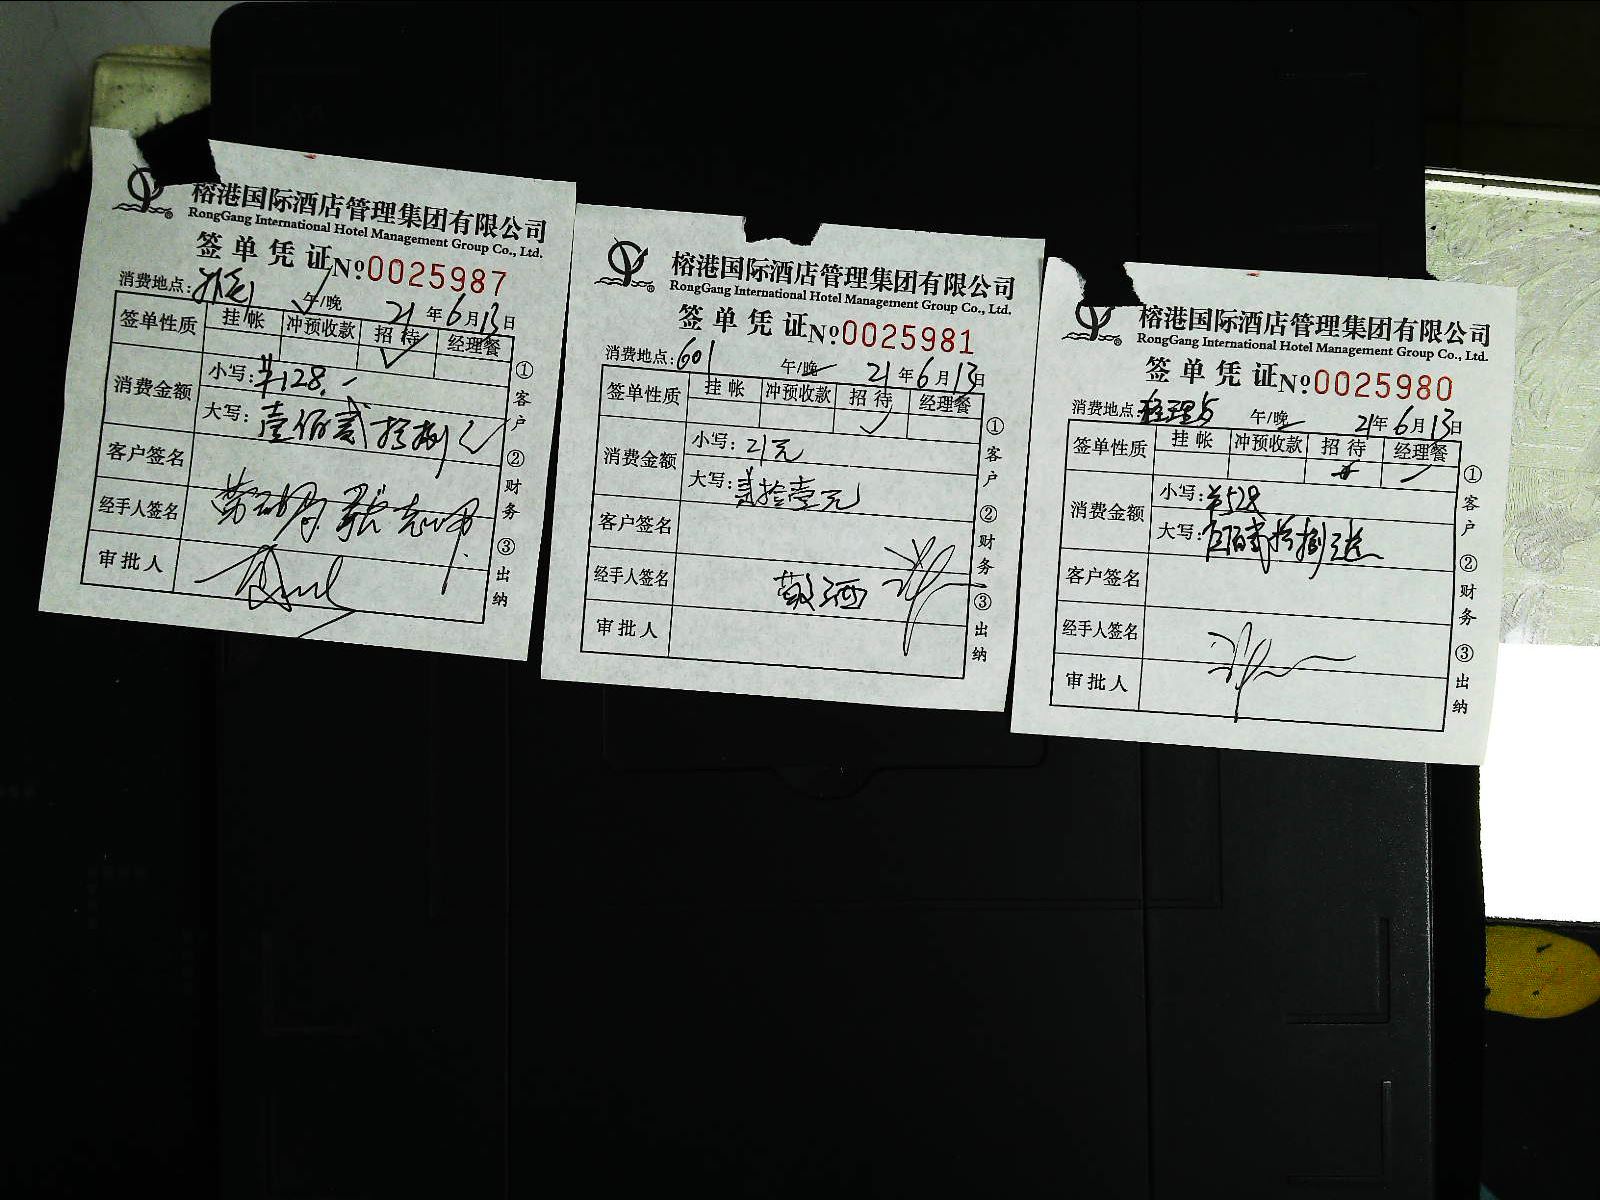 榕港国际酒店管理集团有限公司
RongGang International Hotel Management Group Co., Ltd.
签单凭证 №0025987
消费地点: 午/晚 21年6月13日
签单性质 挂帐 冲预收款 招待 经理餐
消费金额 小写:¥128.-
大写:壹佰贰拾捌元
客户签名
经手人签名
审批人
①客户 ②财务 ③出纳
榕港国际酒店管理集团有限公司
RongGang International Hotel Management Group Co., Ltd.
签单凭证 №0025981
消费地点:601 午/晚 21年6月13日
签单性质 挂帐 冲预收款 招待 经理餐
消费金额 小写:21元
大写:贰拾壹元
客户签名
经手人签名 敬酒
审批人
①客户 ②财务 ③出纳
榕港国际酒店管理集团有限公司
RongGang International Hotel Management Group Co., Ltd.
签单凭证 №0025980
消费地点: 午/晚 21年6月13日
签单性质 挂帐 冲预收款 招待 经理餐
消费金额 小写:¥528
大写:伍佰贰拾捌元
客户签名
经手人签名
审批人
①客户 ②财务 ③出纳